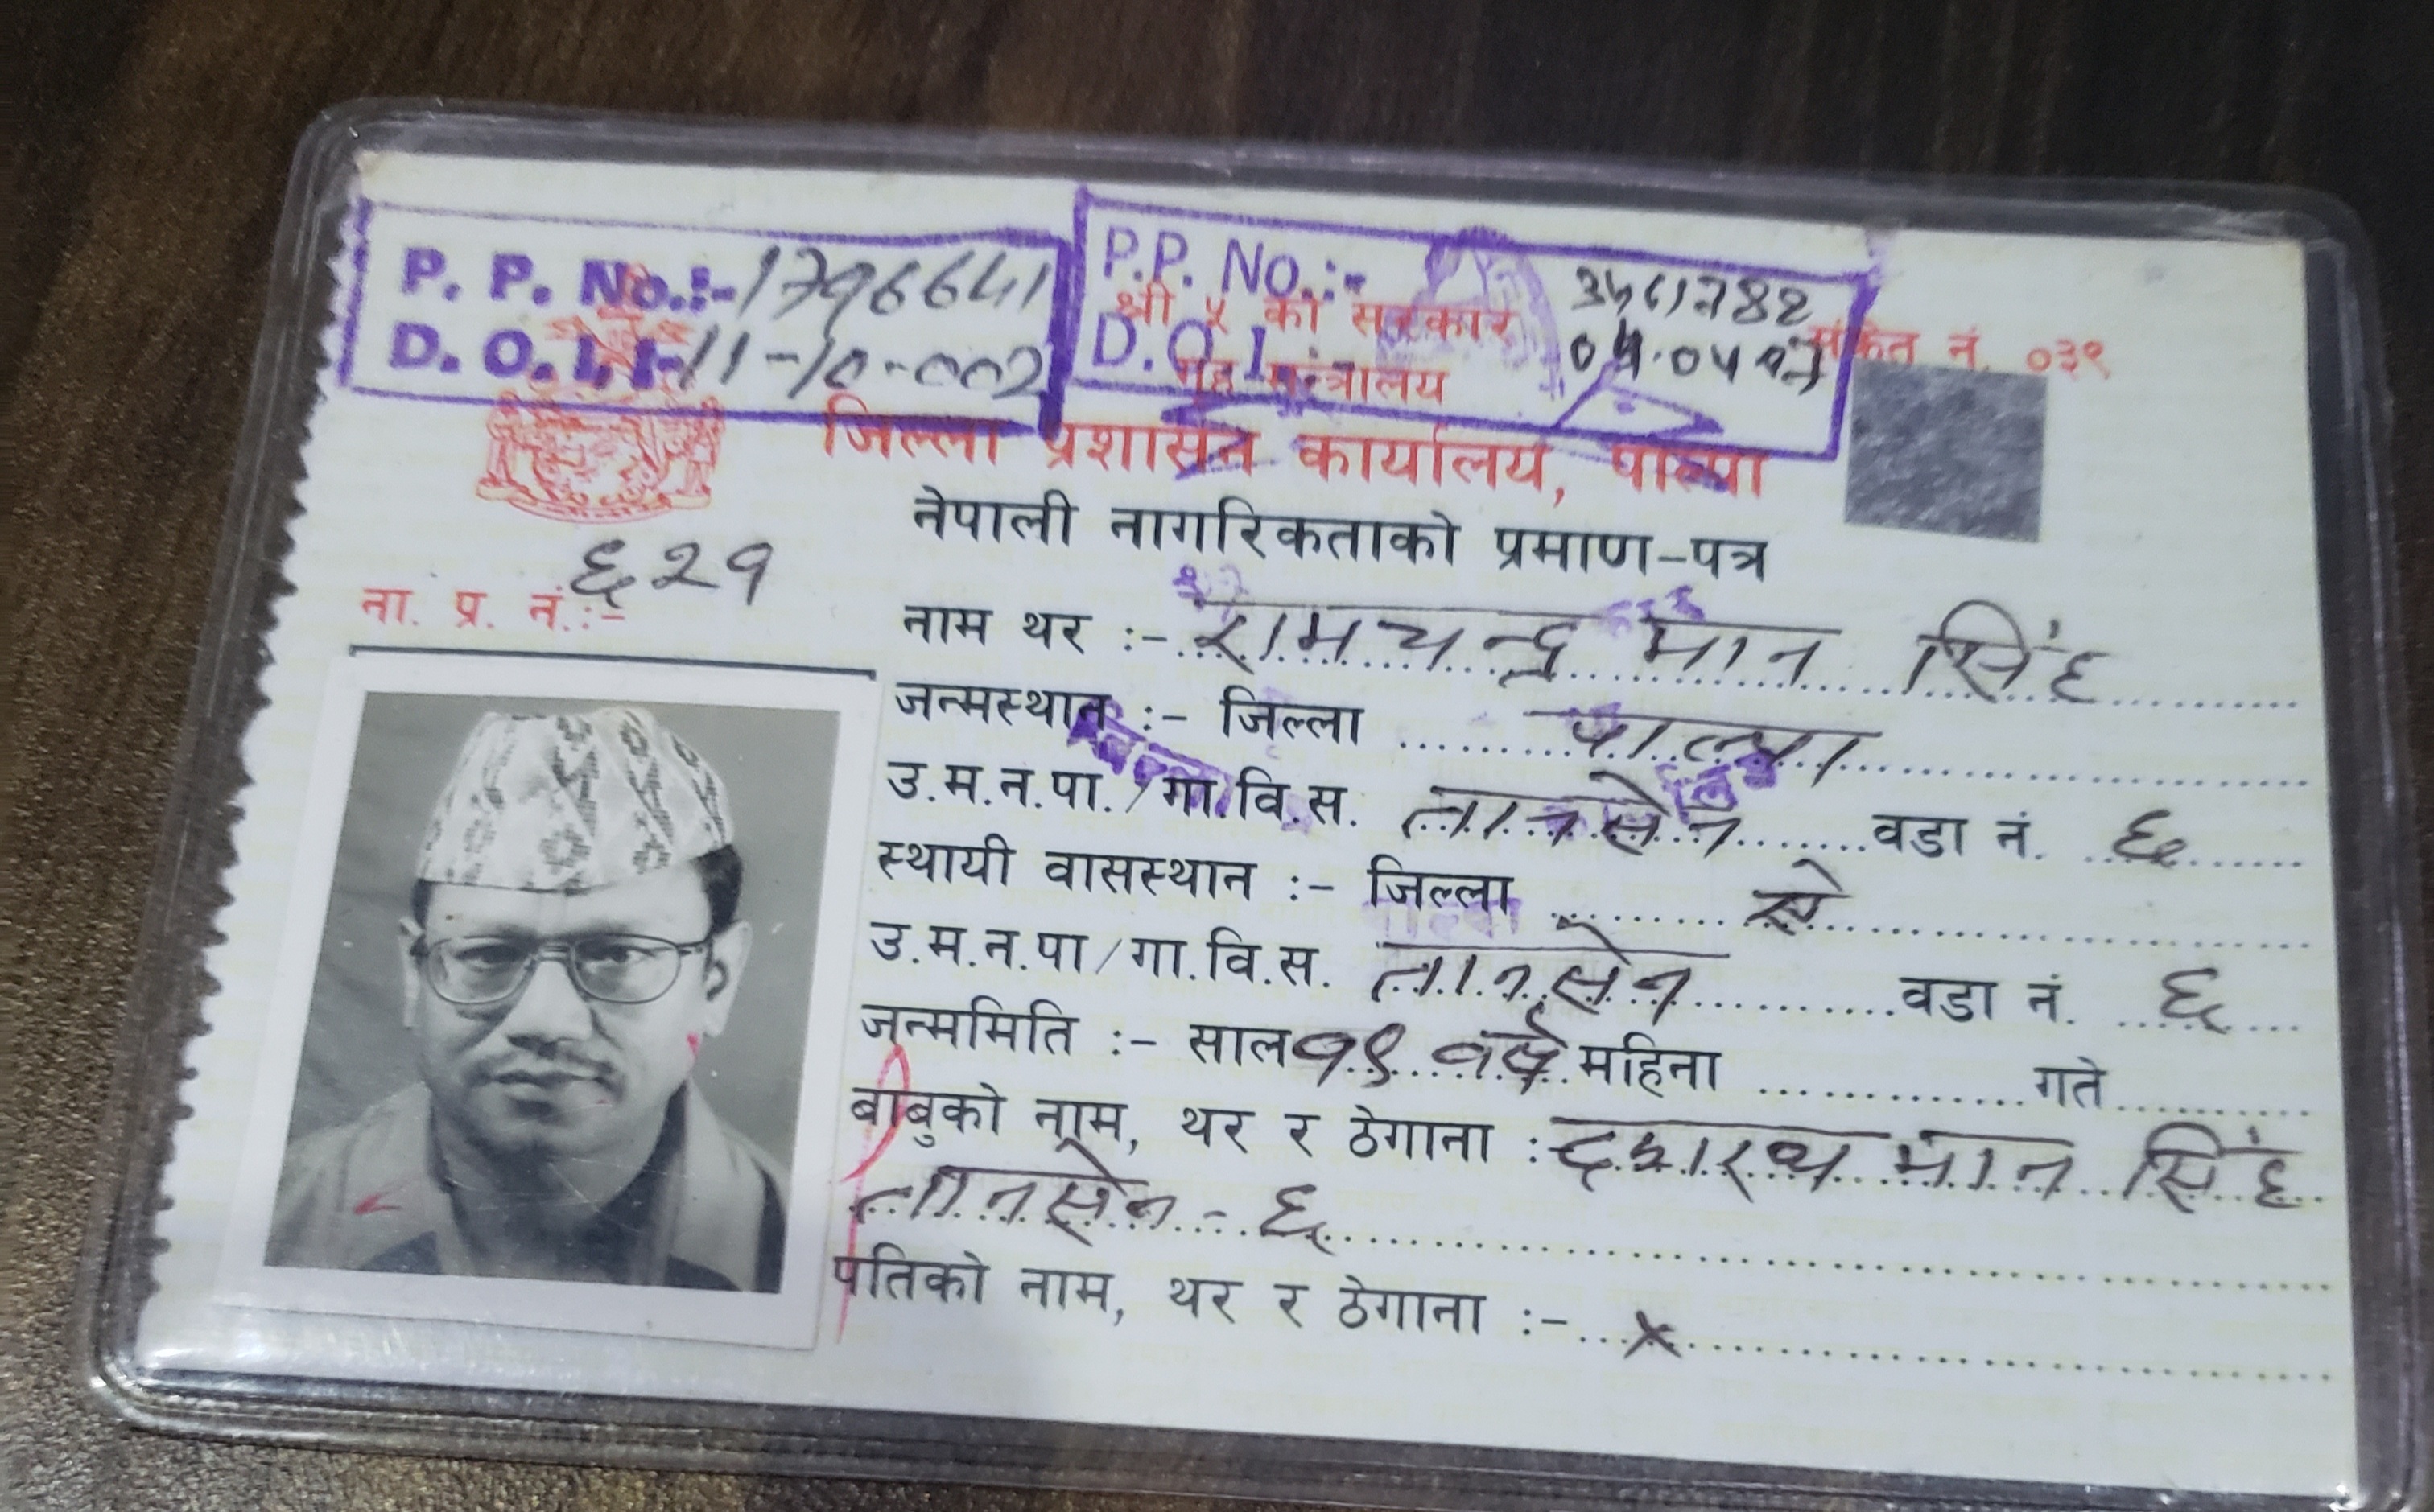 P. P. No.:- 1796641
D. O. I. :- 11-10-002
P.P. NO.:-
D.O.I.
श्री ५ को सरकार
गृह मंत्रालय
संकेत नं. ०३९
जिल्ला प्रशासन कार्यालय, पाल्पा
नेपाली नागरिकताको प्रमाण-पत्र
ना. प्र. नं.:- ६२१
नाम थर :- रामचन्द्र मान सिंह
जन्मस्थान :- जिल्ला पाल्पा
उ.म.न.पा./गा.वि.स. तानसेन वडा नं. ६
स्थायी वासस्थान :- जिल्ला ऐ
उ.म.न.पा/गा.वि.स. तानसेन वडा नं. ६
जन्ममिति :- साल १९ वर्ष महिना गते
बाबुको नाम, थर र ठेगाना : दशरथ मान सिंह
तानसेन - ६
पतिको नाम, थर र ठेगाना :- x